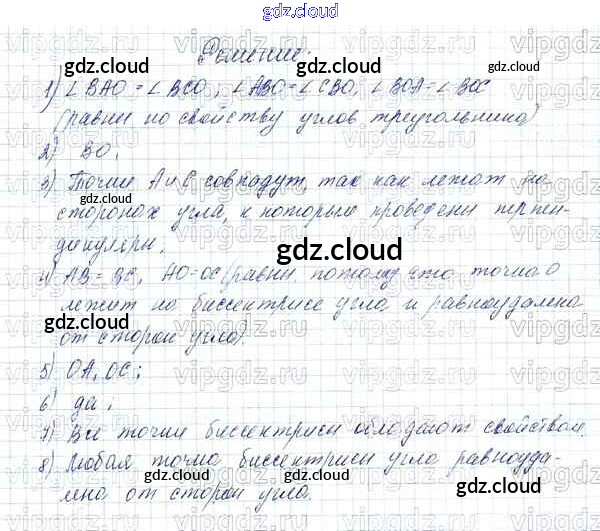 gdz.cloud
Решение.
1) ∠BAO = ∠BCO, ∠ABO = ∠CBO, ∠BOA = ∠BOC
(равны по свойству углов треугольника)
2) BO.
3) Точки A и C совпадут, так как лежат на
сторонах угла, к которым проведены перпен-
дикуляры.
4) AB = BC, AO = OC (равны потому что точка O
лежит на биссектрисе угла и равноудалена
от сторон угла).
5) OA, OC;
6) да;
7) Все точки биссектрисы обладают свойством.
8) Любая точка биссектрисы угла равноуда-
лена от сторон угла.
gdz.cloud
vipgdz.ru